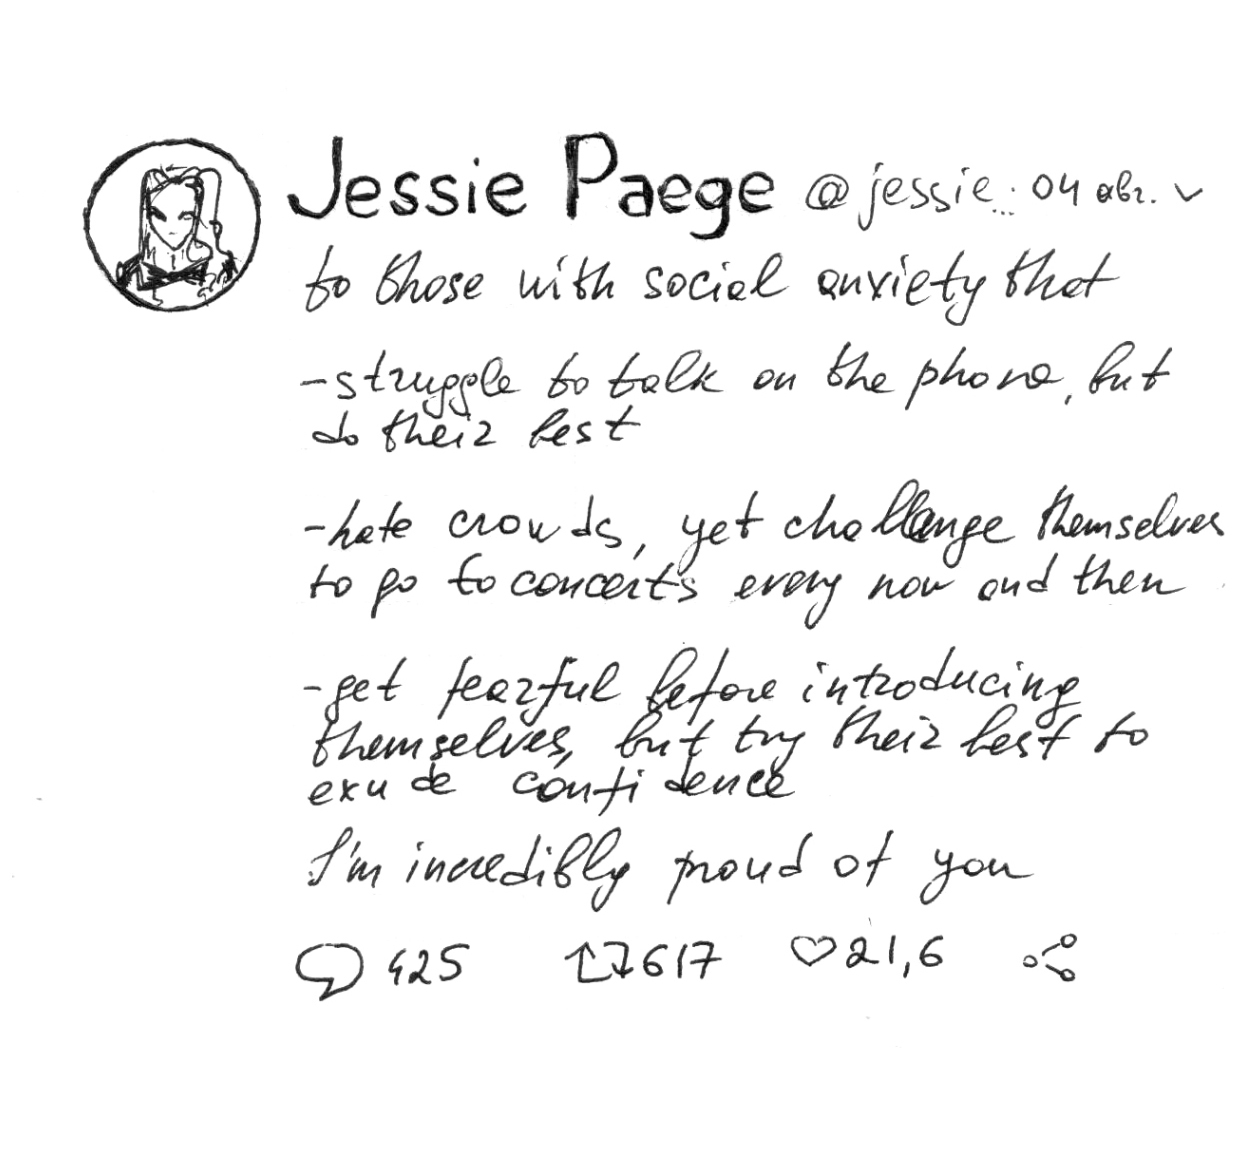 Jessie Paege @jessie... 04 авг.
to those with social anxiety that
-struggle to talk on the phone, but
do their best
-hate crowds, yet challenge themselves
to go to concerts every now and then
-get fearful before introducing
themselves, but try their best to
exude confidence
I'm incredibly proud of you
425 617 21,6